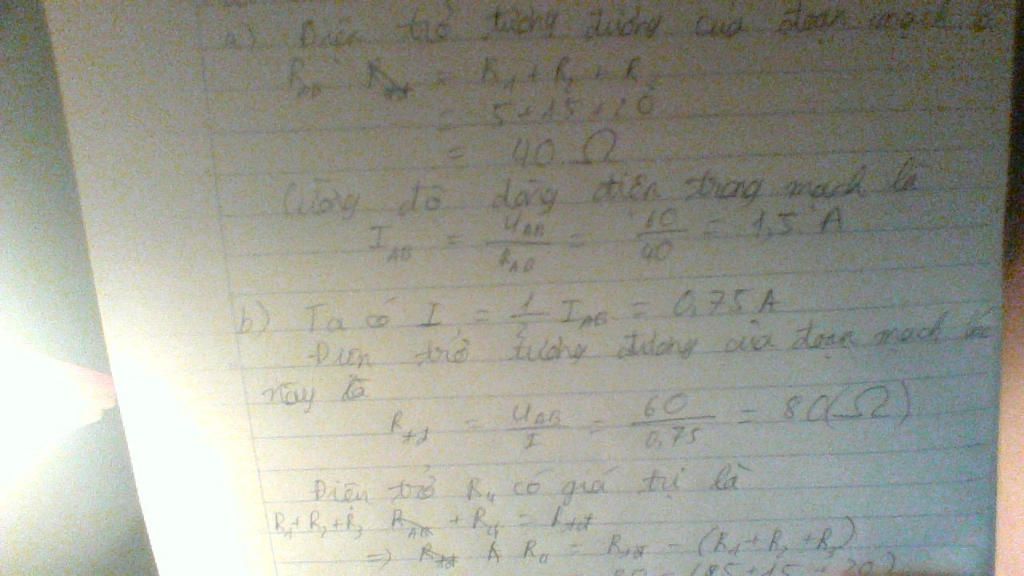 a) Điện trở tương đương của đoạn mạch là
R_AB = R₁ + R₂ + R₃
= 5 + 15 + 20
= 40 Ω
Cường độ dòng điện trong mạch là
I_AB = U_AB / R_AB = 60 / 40 = 1,5 A
b) Ta có I = 1/2 I_AB = 0,75 A
Điện trở tương đương của đoạn mạch lúc
này là
R_tđ = U_AB / I = 60 / 0,75 = 80 (Ω)
Điện trở R₄ có giá trị là
R₁ + R₂ + R₃ + R₄ = R_tđ
=> R₄ = R_tđ - (R₁ + R₂ + R₃)